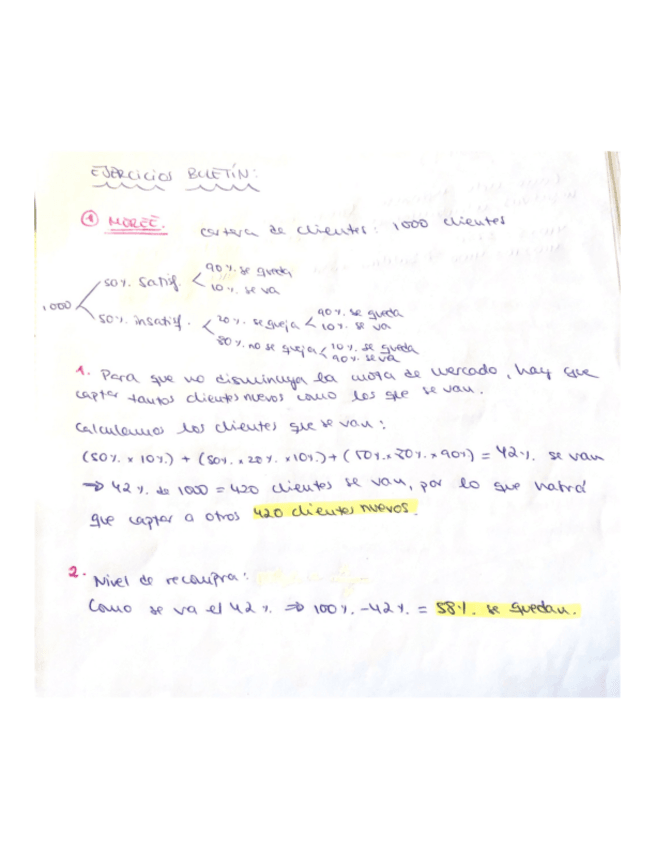 EJERCICIOS BOLETÍN:
① MOREE. cartera de clientes: 1000 clientes
1000
50% satisf. 90% se queda
10% se va
50% insatisf. 20% se queja 90% se queda
10% se va
80% no se queja 10% se queda
90% se va
1. Para que no disminuya la cuota de mercado, hay que
captar tantos clientes nuevos como los que se van.
Calculamos los clientes que se van:
(50% x 10%) + (50% x 20% x 10%) + (50% x 80% x 90%) = 42% se van
⇒ 42% de 1000 = 420 clientes se van, por lo que habrá
que captar a otros 420 clientes nuevos.
2. Nivel de recompra:
Como se va el 42% ⇒ 100% - 42% = 58% se quedan.